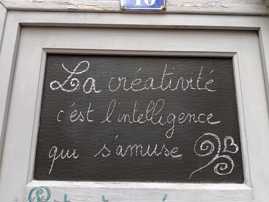 10
La créativité
c'est l'intelligence
qui s'amuse